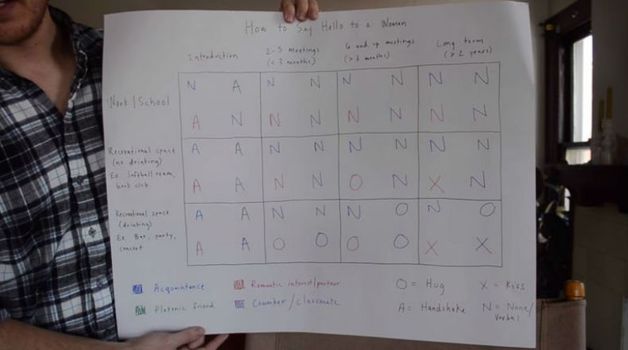 How to Say Hello to a Woman
Introduction 2-5 meetings 6 and up meetings Long term
(< 3 months) (> 3 months) (> 2 years)
Work / School
N A N N N N N N
A N N N N N N N
Recreational space
(no drinking)
Ex. Softball team,
book club
A A N N N N N N
A A N N O N X N
Recreational space
(drinking)
Ex. Bar, party,
concert
A A N N N O N O
A A O O O O X X
Acquaintance Romantic interest/partner O = Hug X = Kiss
Platonic friend Coworker/classmate A = Handshake N = None/
Verbal